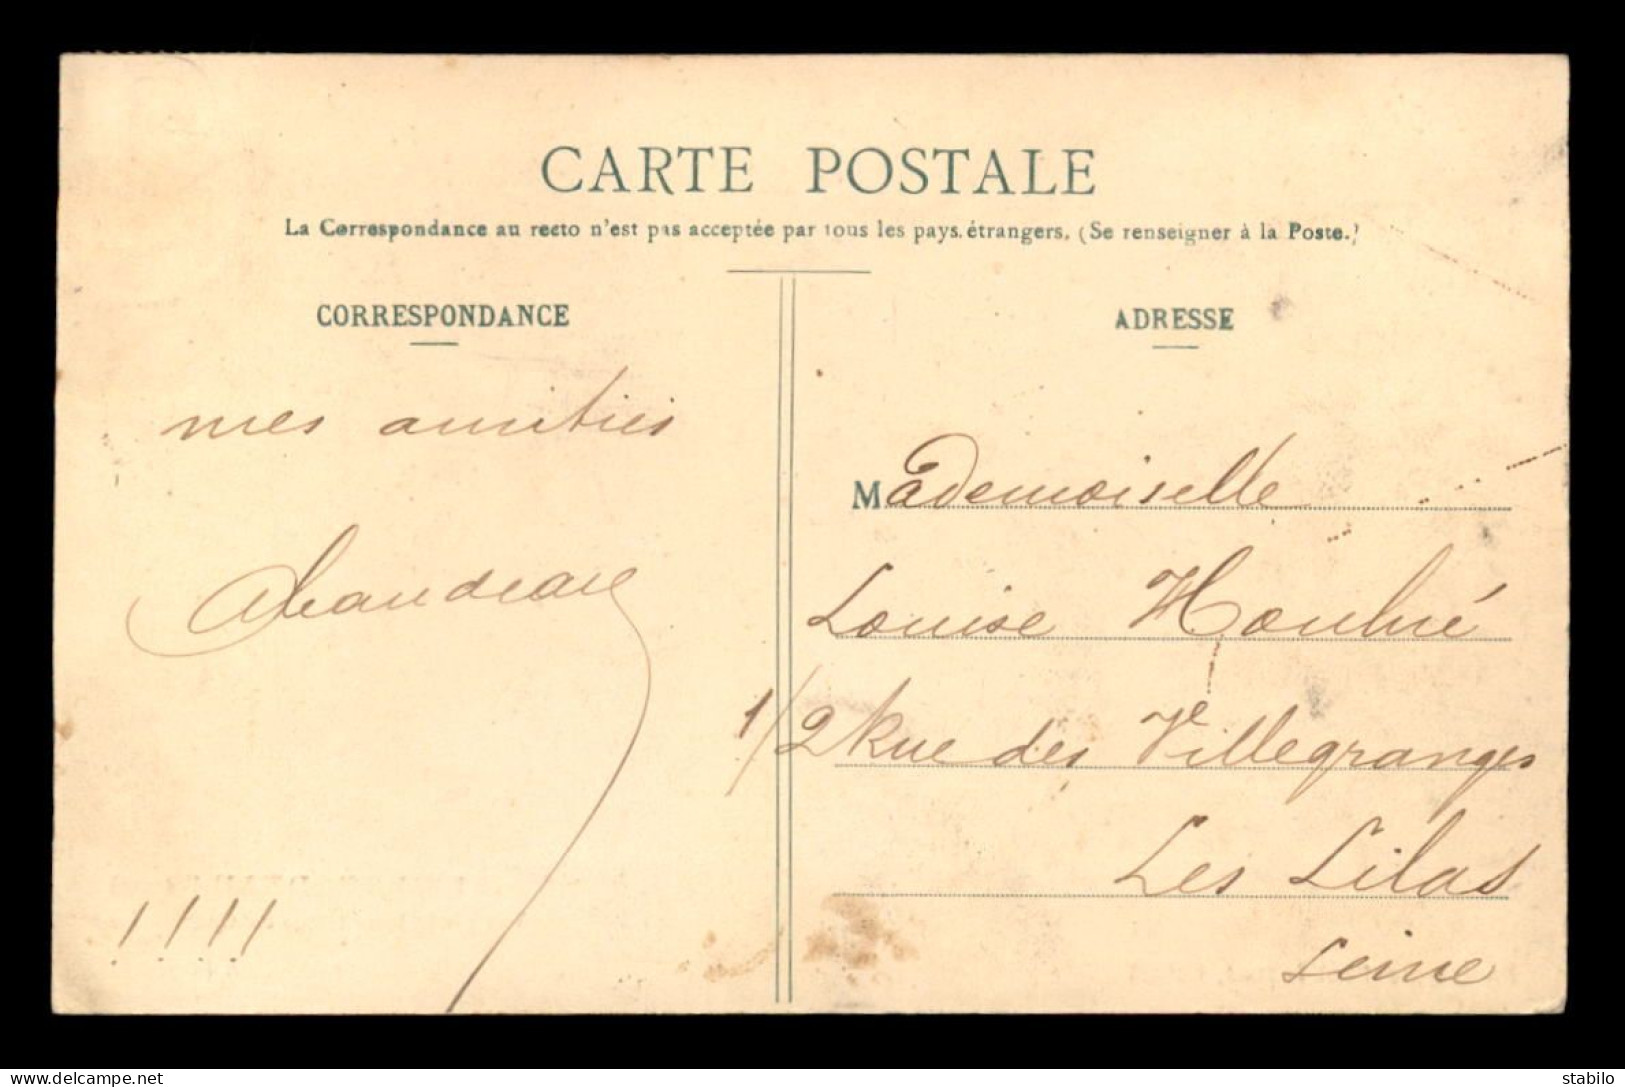 CARTE POSTALE
La Correspondance au recto n'est pas acceptée par tous les pays étrangers. (Se renseigner à la Poste.)
CORRESPONDANCE
mes amitiés
!!!!
ADRESSE
Mademoiselle
Louise
1/2 Rue des Villegranges
Les Lilas
Seine
www.delcampe.net
stabilo